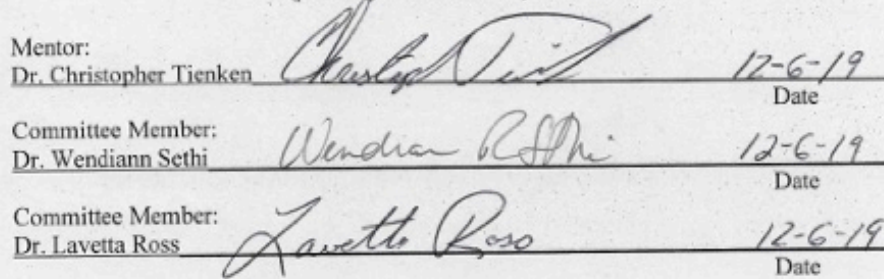 Mentor:
Dr. Christopher Tienken Christoph Tienk 12-6-19
Date
Committee Member:
Dr. Wendiann Sethi Wendiann R Sethi 12-6-19
Date
Committee Member:
Dr. Lavetta Ross Lavetta Ross 12-6-19
Date